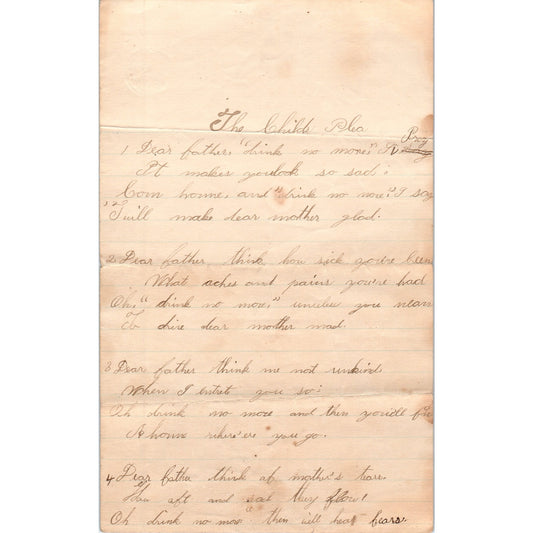 The Childs Plea
1 Dear father, "drink no more," I Pray
It makes you look so sad;
Com home, and "drink no more" I say
'Twill make dear mother glad.
2 Dear father, think how sick you've been
What aches and pains you've had
Oh, "drink no more," unless you mean
To drive dear mother mad.
3 Dear father think me not unkind
When I entret you so:
Oh drink no more and then you'll
A home where'er you go.
4 Dear father think of mother's tears
How oft and sad they flow!
Oh drink no more" then will her fears